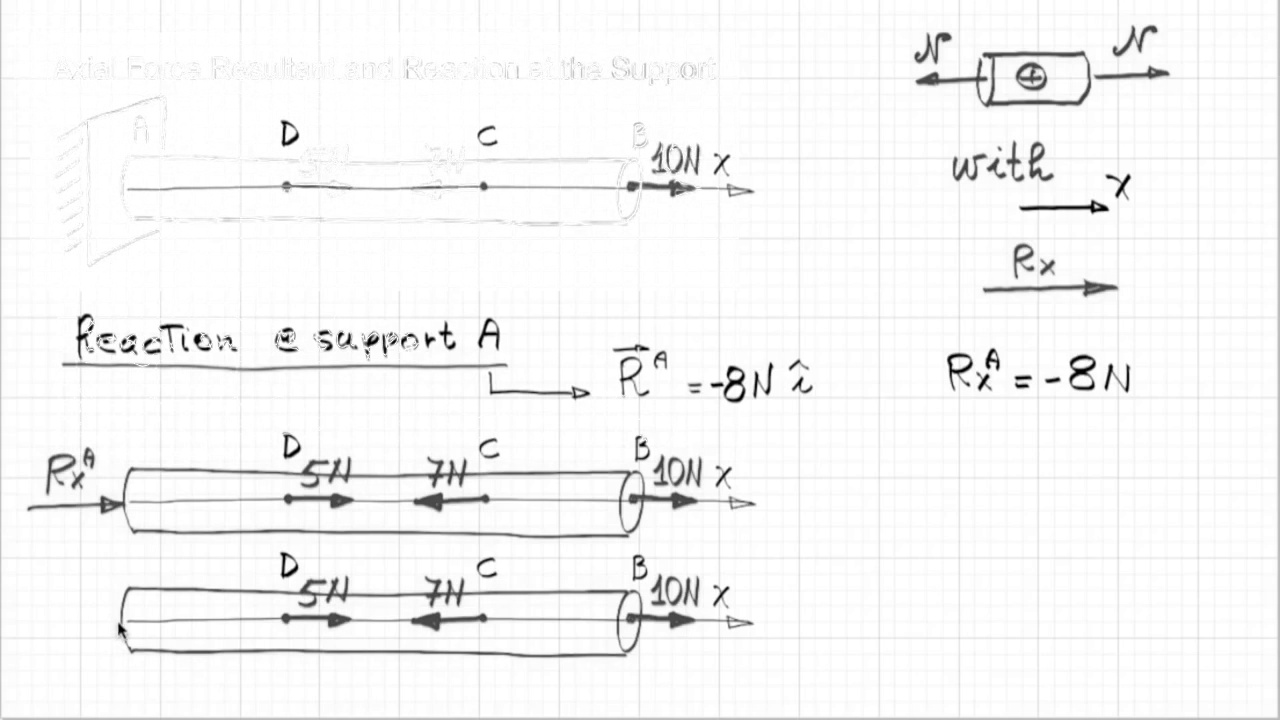 axial Force Resultant and Reaction at the Support
N N
A D 5N 7N C B 10N x
with
x
Rx
Reaction @ support A
R^A = -8N î
Rx^A = -8N
Rx^A D 5N 7N C B 10N x
D 5N 7N C B 10N x